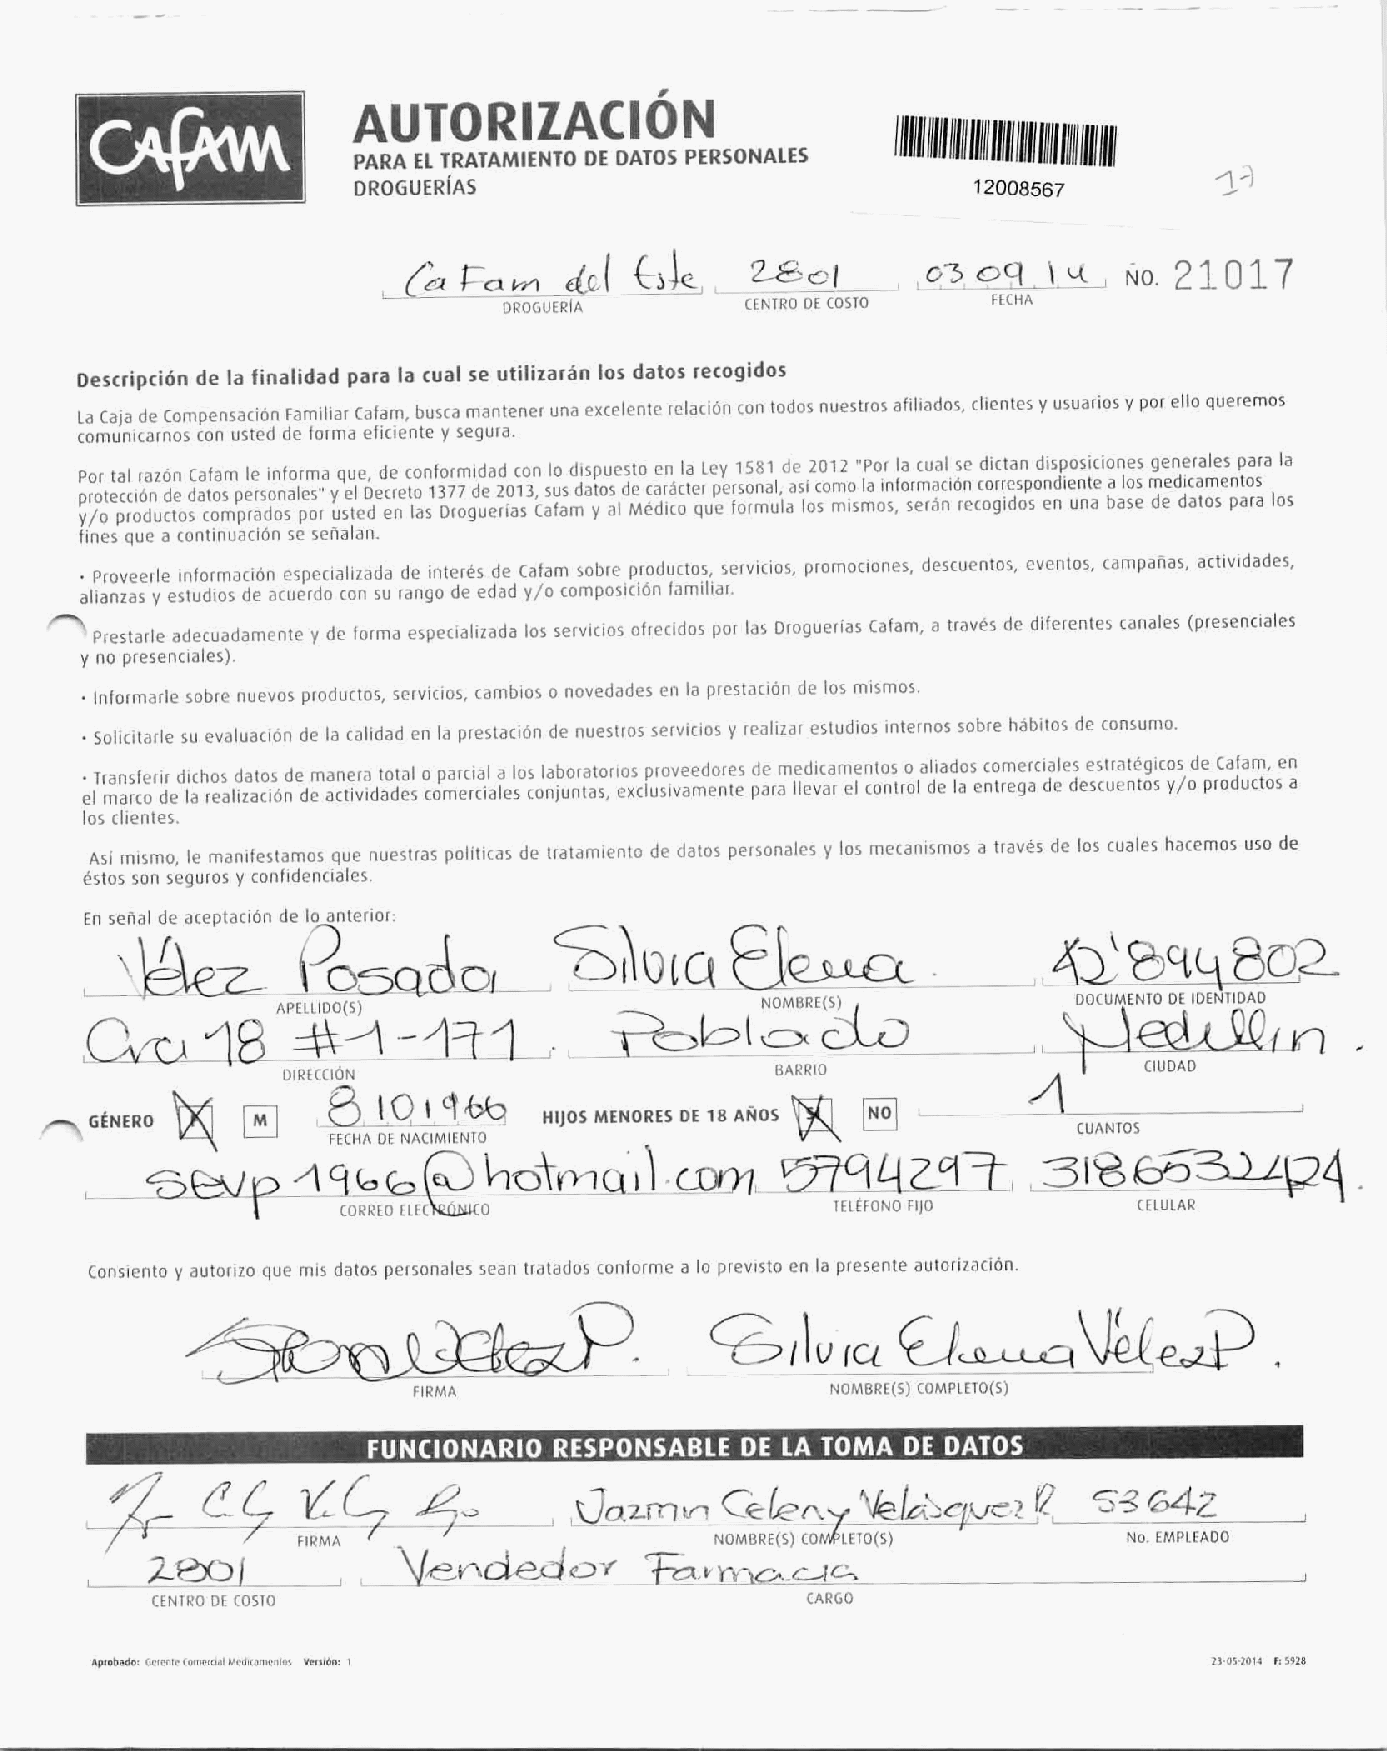 CAFAM
AUTORIZACIÓN
PARA EL TRATAMIENTO DE DATOS PERSONALES
DROGUERÍAS
12008567
17
CaFam del Este 2801 03 09 14 NO. 21017
DROGUERÍA CENTRO DE COSTO FECHA
Descripción de la finalidad para la cual se utilizarán los datos recogidos
La Caja de Compensación Familiar Cafam, busca mantener una excelente relación con todos nuestros afiliados, clientes y usuarios y por ello queremos
comunicarnos con usted de forma eficiente y segura.
Por tal razón Cafam le informa que, de conformidad con lo dispuesto en la Ley 1581 de 2012 "Por la cual se dictan disposiciones generales para la
protección de datos personales" y el Decreto 1377 de 2013, sus datos de carácter personal, así como la información correspondiente a los medicamentos
y/o productos comprados por usted en las Droguerías Cafam y al Médico que formula los mismos, serán recogidos en una base de datos para los
fines que a continuación se señalan.
· Proveerle información especializada de interés de Cafam sobre productos, servicios, promociones, descuentos, eventos, campañas, actividades,
alianzas y estudios de acuerdo con su rango de edad y/o composición familiar.
Prestarle adecuadamente y de forma especializada los servicios ofrecidos por las Droguerías Cafam, a través de diferentes canales (presenciales
y no presenciales).
· Informarle sobre nuevos productos, servicios, cambios o novedades en la prestación de los mismos.
· Solicitarle su evaluación de la calidad en la prestación de nuestros servicios y realizar estudios internos sobre hábitos de consumo.
· Transferir dichos datos de manera total o parcial a los laboratorios proveedores de medicamentos o aliados comerciales estratégicos de Cafam, en
el marco de la realización de actividades comerciales conjuntas, exclusivamente para llevar el control de la entrega de descuentos y/o productos a
los clientes.
Así mismo, le manifestamos que nuestras políticas de tratamiento de datos personales y los mecanismos a través de los cuales hacemos uso de
éstos son seguros y confidenciales.
En señal de aceptación de lo anterior:
Vélez Posada Silvia Elena 42'894802
APELLIDO(S) NOMBRE(S) DOCUMENTO DE IDENTIDAD
Cra 18 #1-171. Poblado Medellín.
DIRECCIÓN BARRIO CIUDAD
GÉNERO M 8 10 1966 HIJOS MENORES DE 18 AÑOS NO 1
FECHA DE NACIMIENTO CUANTOS
sevp1966@hotmail.com 5794297
CORREO ELECTRÓNICO TELÉFONO FIJO CELULAR
Consiento y autorizo que mis datos personales sean tratados conforme a lo previsto en la presente autorización.
Silvia Elena Vélez P.
FIRMA NOMBRE(S) COMPLETO(S)
FUNCIONARIO RESPONSABLE DE LA TOMA DE DATOS
Jazmin Celeny Velásquez R 53642
FIRMA NOMBRE(S) COMPLETO(S) No. EMPLEADO
2801 Vendedor Farmacia
CENTRO DE COSTO CARGO
Aprobado: Gerente Comercial Medicamentos Versión: 1 23-05-2014 F: 5928